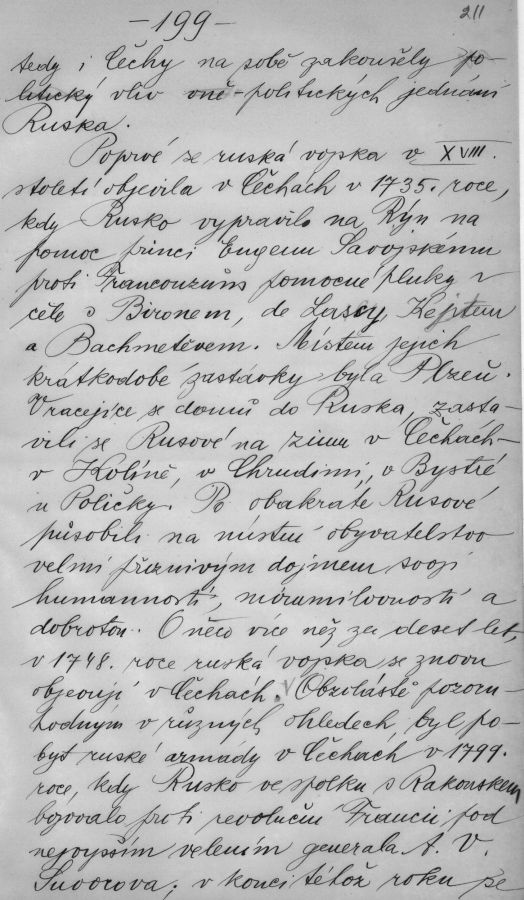 —199—
211
tedy i Čechy na sobě zakoušely po-
litický vliv vně-politických jednání
Ruska.
Poprvé se ruská vojska v XVIII.
století objevila v Čechách v 1735. roce,
kdy Rusko vypravilo na Rýn na
pomoc princi Eugenu Savojskému
proti Francouzům pomocné pluky v
čele s Bironem, de Lascy, Kejtem
a Bachmetěvem. Místem jejich
krátkodobé zastávky byla Plzeň.
Vracejíce se domů do Ruska, zasta-
vili se Rusové na zimu v Čechách-
v Kolíně, v Chrudimi, v Bystré
u Poličky. Po obakráte Rusové
působili na místní obyvatelstvo
velmi příznivým dojmem svojí
humanností, mírumilovností a
dobrotou. O něco více než za deset let,
v 1748. roce ruská vojska se znovu
objevují v Čechách. Obzvláště pozoru-
hodným v různých ohledech, byl po-
byt ruské armády v Čechách v 1799.
roce, kdy Rusko ve spolku s Rakouskem
bojovalo proti revoluční Francii pod
nejvyšším velením generala A. V.
Suvorova; v konci téhož roku se